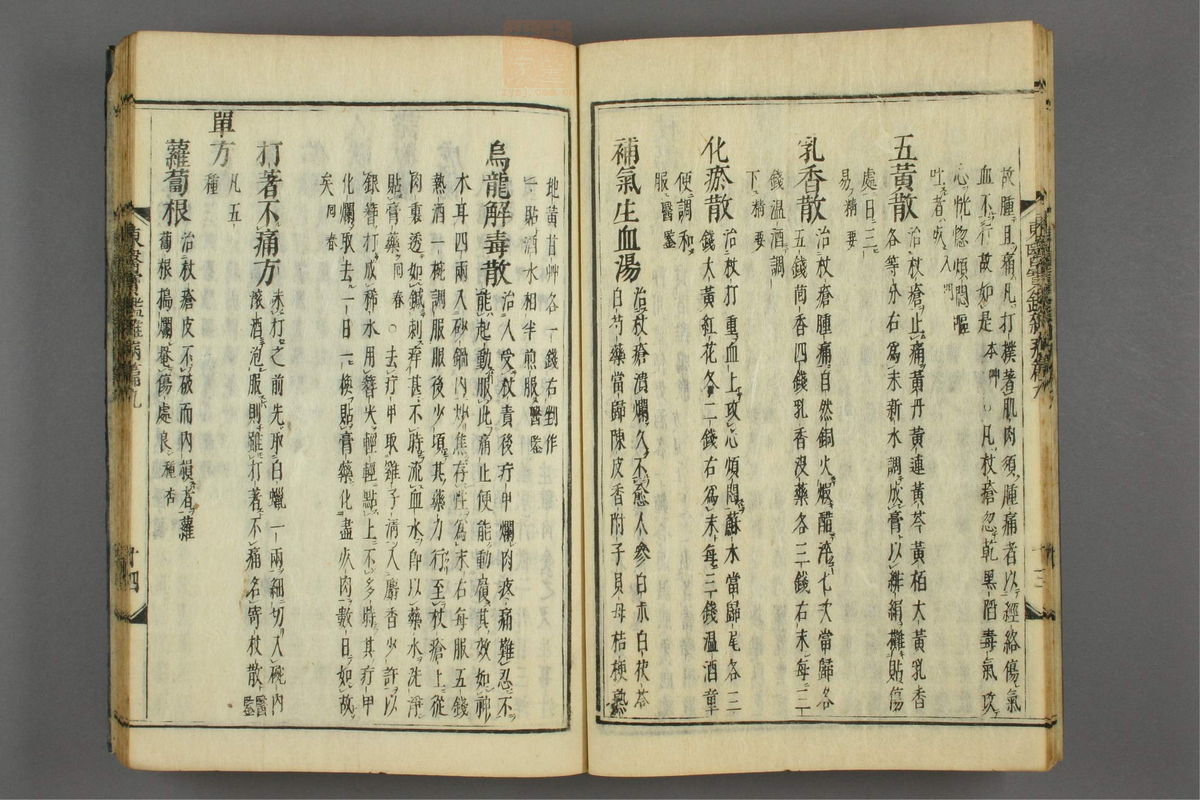 故腫且痛凡打撲著肌肉須腫痛者以經絡傷氣
血不行故如是本艸○凡杖瘡忽乾黑陷毒氣攻
心恍惚煩悶嘔
吐者死入門
五黃散
治杖瘡止痛黃丹黃連黃芩黃栢大黃乳香
各等分右爲末新水調成膏以緋絹攤貼傷
處日三
易精要
乳香散
治杖瘡腫痛自然銅火煆醋淬七次當歸各
五錢茴香四錢乳香沒藥各三錢右末每三
錢溫酒調
下精要
化瘀散
治杖打重血上攻心煩悶蘇木當歸尾各三
錢大黃紅花各二錢右爲末每三錢溫酒童
便調和
服醫鑒
補氣生血湯
治杖瘡潰爛久不愈人參白朮白茯苓
白芍藥當歸陳皮香附子貝母桔梗熟
十三
地黃甘艸各一錢右剉作
一貼酒水相半煎服醫鑒
烏龍解毒散
治人受杖責後疔甲爛肉疼痛難忍不
能起動服此痛止便能動履其效如神
木耳四兩入砂鍋內炒焦存性爲末右每服五錢
熱酒一椀調服服後少頃其藥力行至杖瘡上從
肉裏透如鍼刺痒甚不時流血水卽以藥水洗淨
貼膏藥回春○去疔甲取雞子淸入麝香少許以
銀簪打成稀水用簪尖輕輕點上不多時其疔甲
化爛取去一日一換貼膏藥化盡死肉數日如故
矣回春
打著不痛方
未打之前先取白蠟一兩細切入碗內
滾酒泡服則雖打著不痛名寄杖散醫鑒
單方
凡五
種
蘿蔔根
治杖瘡皮不破而內損者蘿
蔔根搗爛罨傷處良種杏
東醫寶鑑雜病篇九
十四